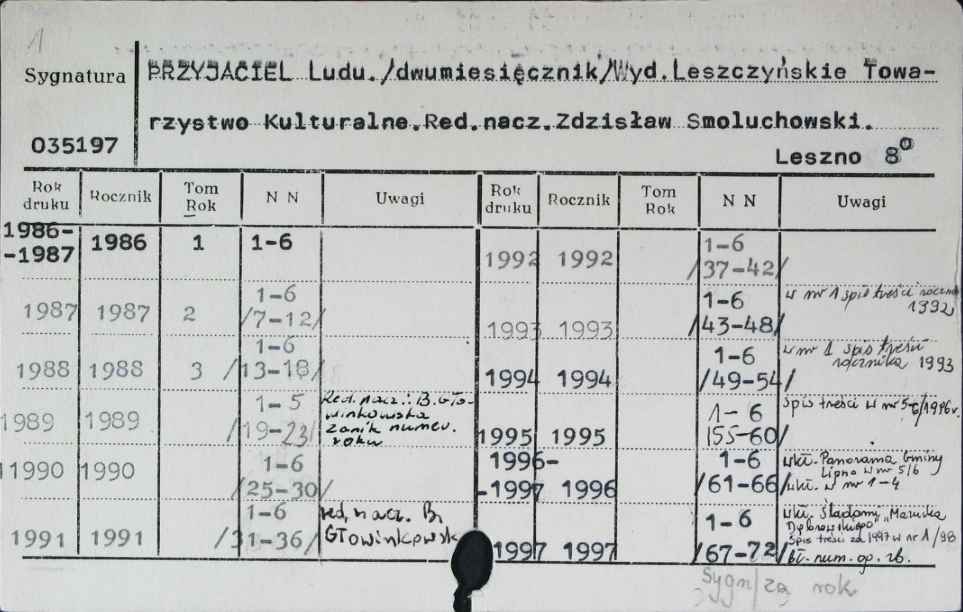 1
Sygnatura
035197
PRZYJACIEL Ludu./dwumiesięcznik/Wyd.Leszczyńskie Towa-
rzystwo Kulturalne.Red.nacz.Zdzisław Smoluchowski.
Leszno 8°
Rok druku Rocznik Tom Rok N N Uwagi
1986--1987 1986 1 1-6
1987 1987 2 1-6 /7-12/
1988 1988 3 1-6 /13-18/
1989 1989 1-5 /19-23/ Red. nacz.: B. Głowinkowska zanik numer. roku
1990 1990 1-6 /25-30/
1991 1991 1-6 /31-36/ red. nacz. B. Głowinkowska
Rok druku Rocznik Tom Rok N N Uwagi
1992 1992 1-6 /37-42/
1993 1993 1-6 /43-48/ w nr 1 spis treści roczn. 1992
1994 1994 1-6 /49-54/ w nr 1 spis treści rocznika 1993
1995 1995 1-6 /55-60/ Spis treści w nr 5-6/1996 r.
1996--1997 1996 1-6 /61-66/ wkł. Panorama Gminy Lipno w nr 5/6 wkł. w nr 1-4
1997 1997 1-6 /67-72/ wkł. Śladami Spis treści za 1997 w nr 1/98 bł. num. op. zb.
Sygn/za rok